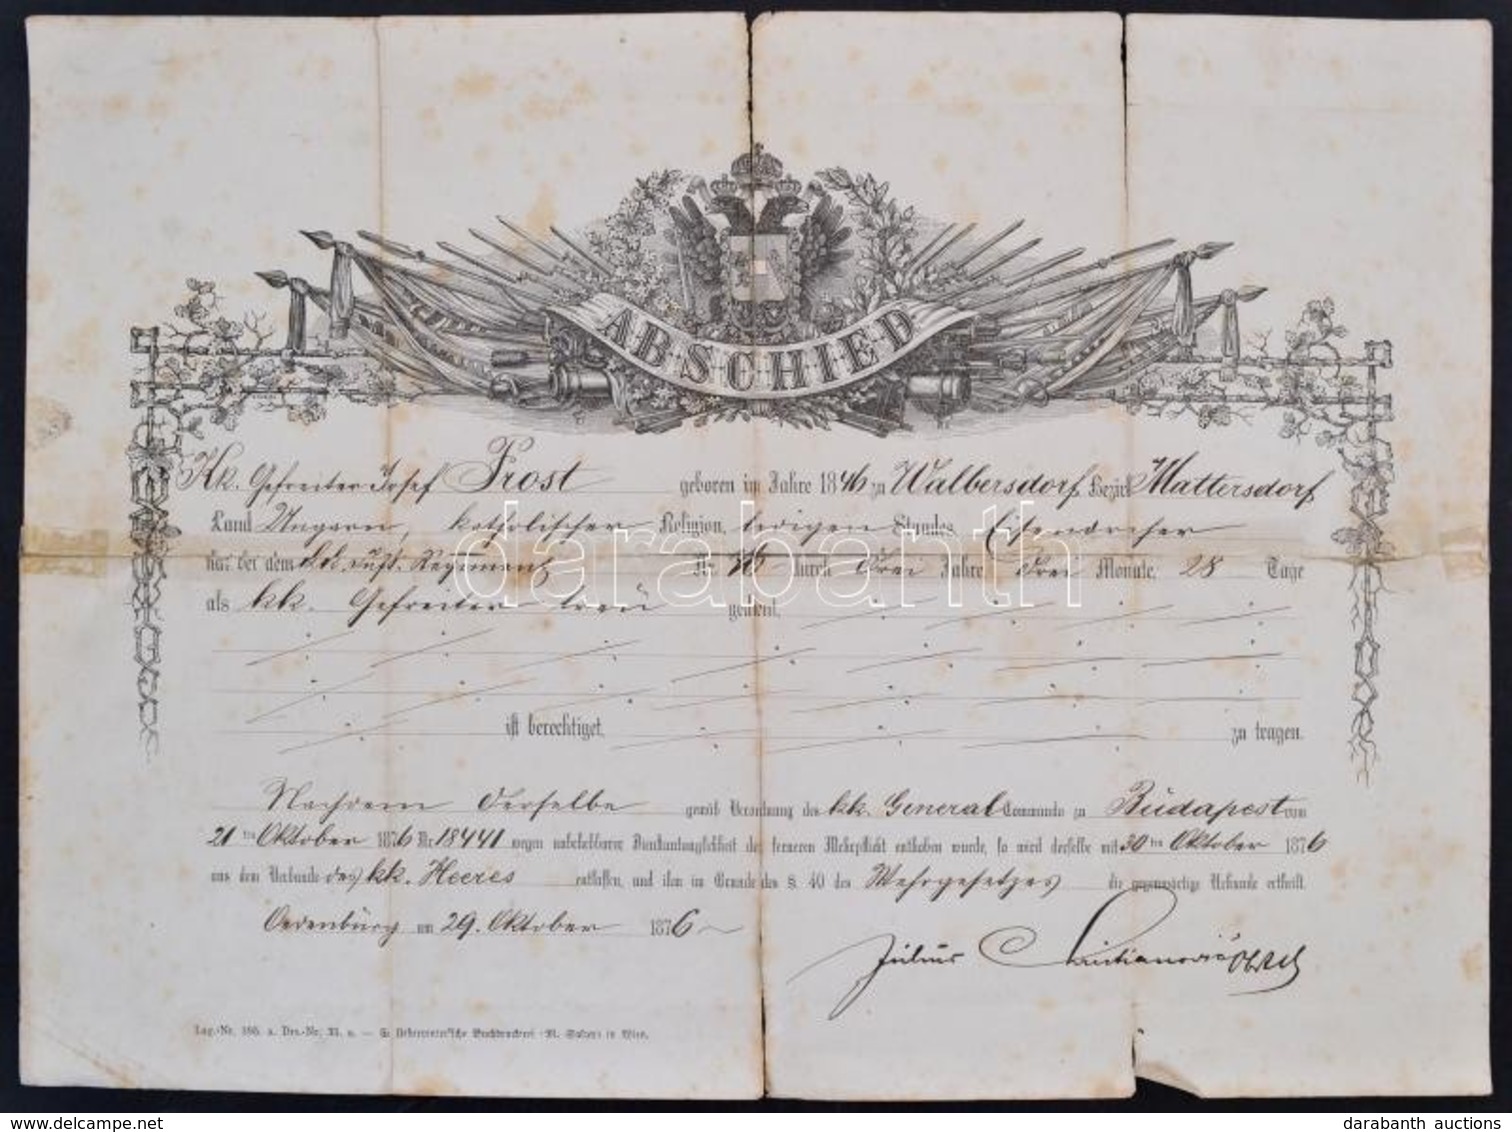 ABSCHIED
kk. Gefreiter Josef Prost geboren im Jahre 1846 zu Walbersdorf, Bezirk Mattersdorf
Land Ungarn, katholischer Religion, ledigen Standes, Eisendreher
hat bei dem kk. Inft. Regiment Nr. 76 durch drei Jahre drei Monate 28 Tage
als kk. Gefreiter treu gedient,
ist berechtiget, zu tragen.
Nachdem derselbe gemäß Verordnung des kk. General Commando zu Budapest vom
21ten Oktober 1876 Nr. 18441 wegen unbehebbarer Dienstuntauglichkeit der ferneren Wehrpflicht enthoben wurde, so wird derselbe mit 30ten Oktober 1876
aus dem Verbande des kk. Heeres entlassen, und ihm im Grunde des §. 40 des Wehrgesetzes die gegenwärtige Urkunde ertheilt.
Oedenburg am 29. Oktober 1876
Julius Christianovič Obstl
Lag.-Nr. a. Buchdruckerei M. Salzer in Wien.
darabanth
darabanth auctions